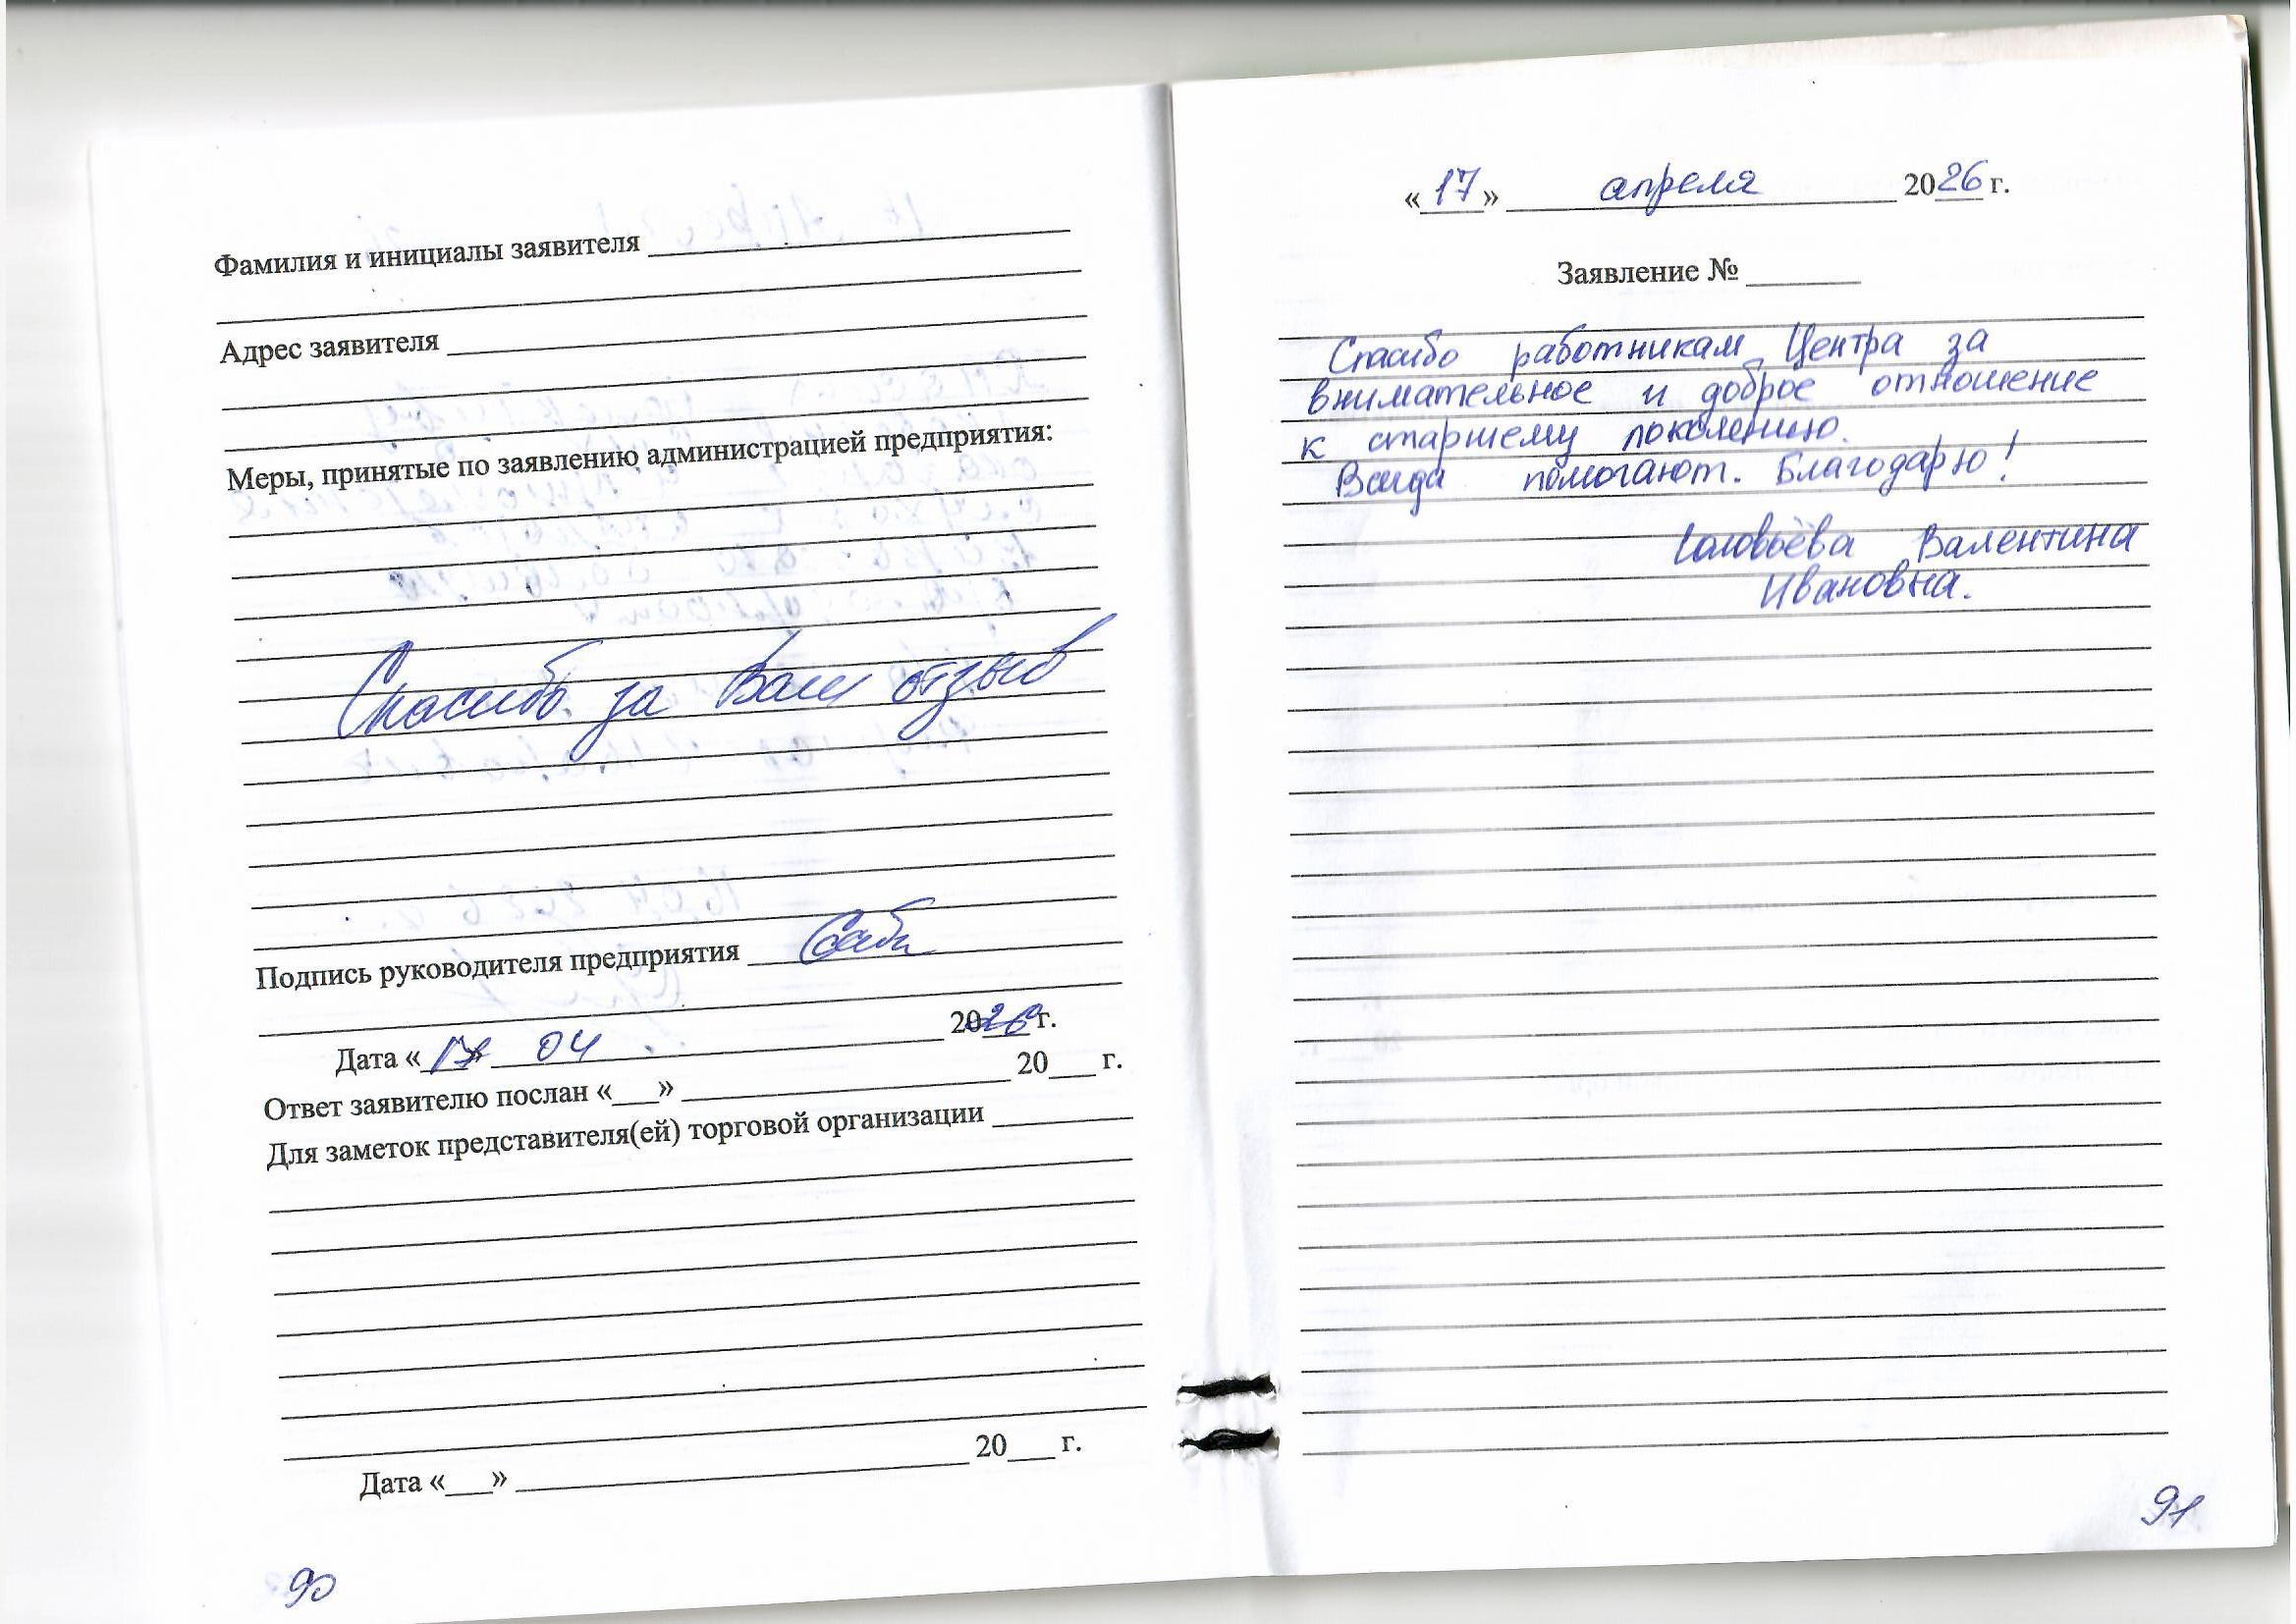 Фамилия и инициалы заявителя
Адрес заявителя
Меры, принятые по заявлению администрацией предприятия:
Спасибо за Ваш отзыв
Подпись руководителя предприятия
Дата «17» 04 2026 г.
Ответ заявителю послан «___» 20___ г.
Для заметок представителя(ей) торговой организации
Дата «___» 20___ г.
90
«17» апреля 2026 г.
Заявление № 
Спасибо работникам Центра за
внимательное и доброе отношение
к старшему поколению.
Всегда помогают. Благодарю!
Соловьёва Валентина
Ивановна.
91